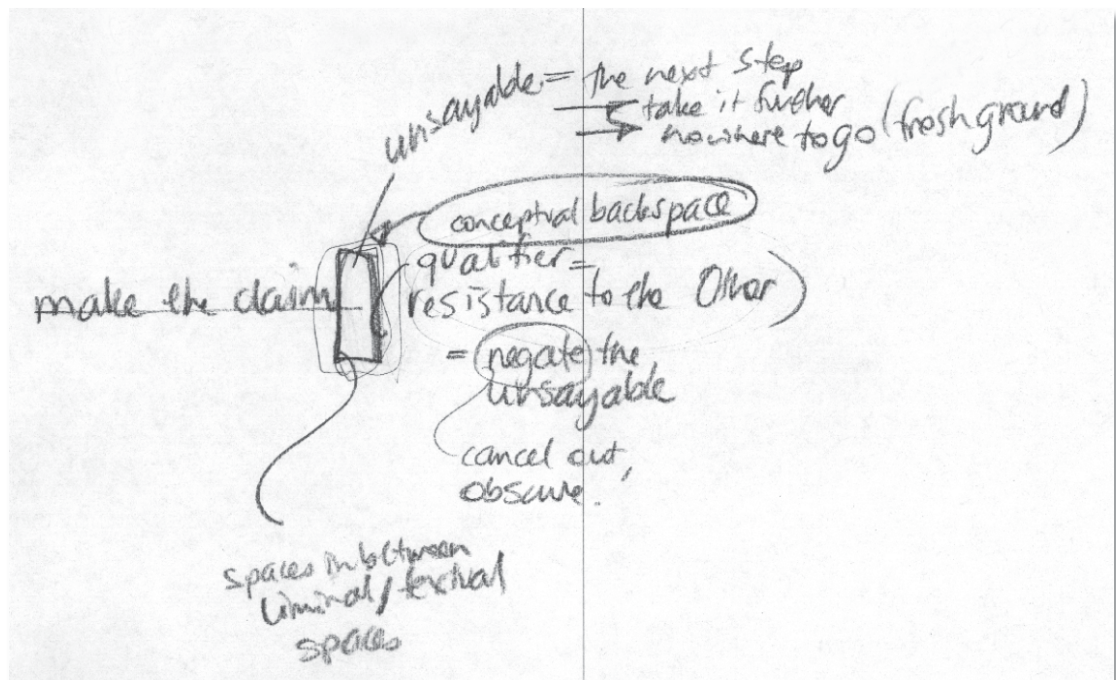 unsayable = the next step
take it further
nowhere to go (fresh ground)
conceptual backspace
make the claim
qualifier =
resistance to the Other)
= negate the
unsayable
cancel out,
obscure.
spaces in between
liminal/textual
spaces